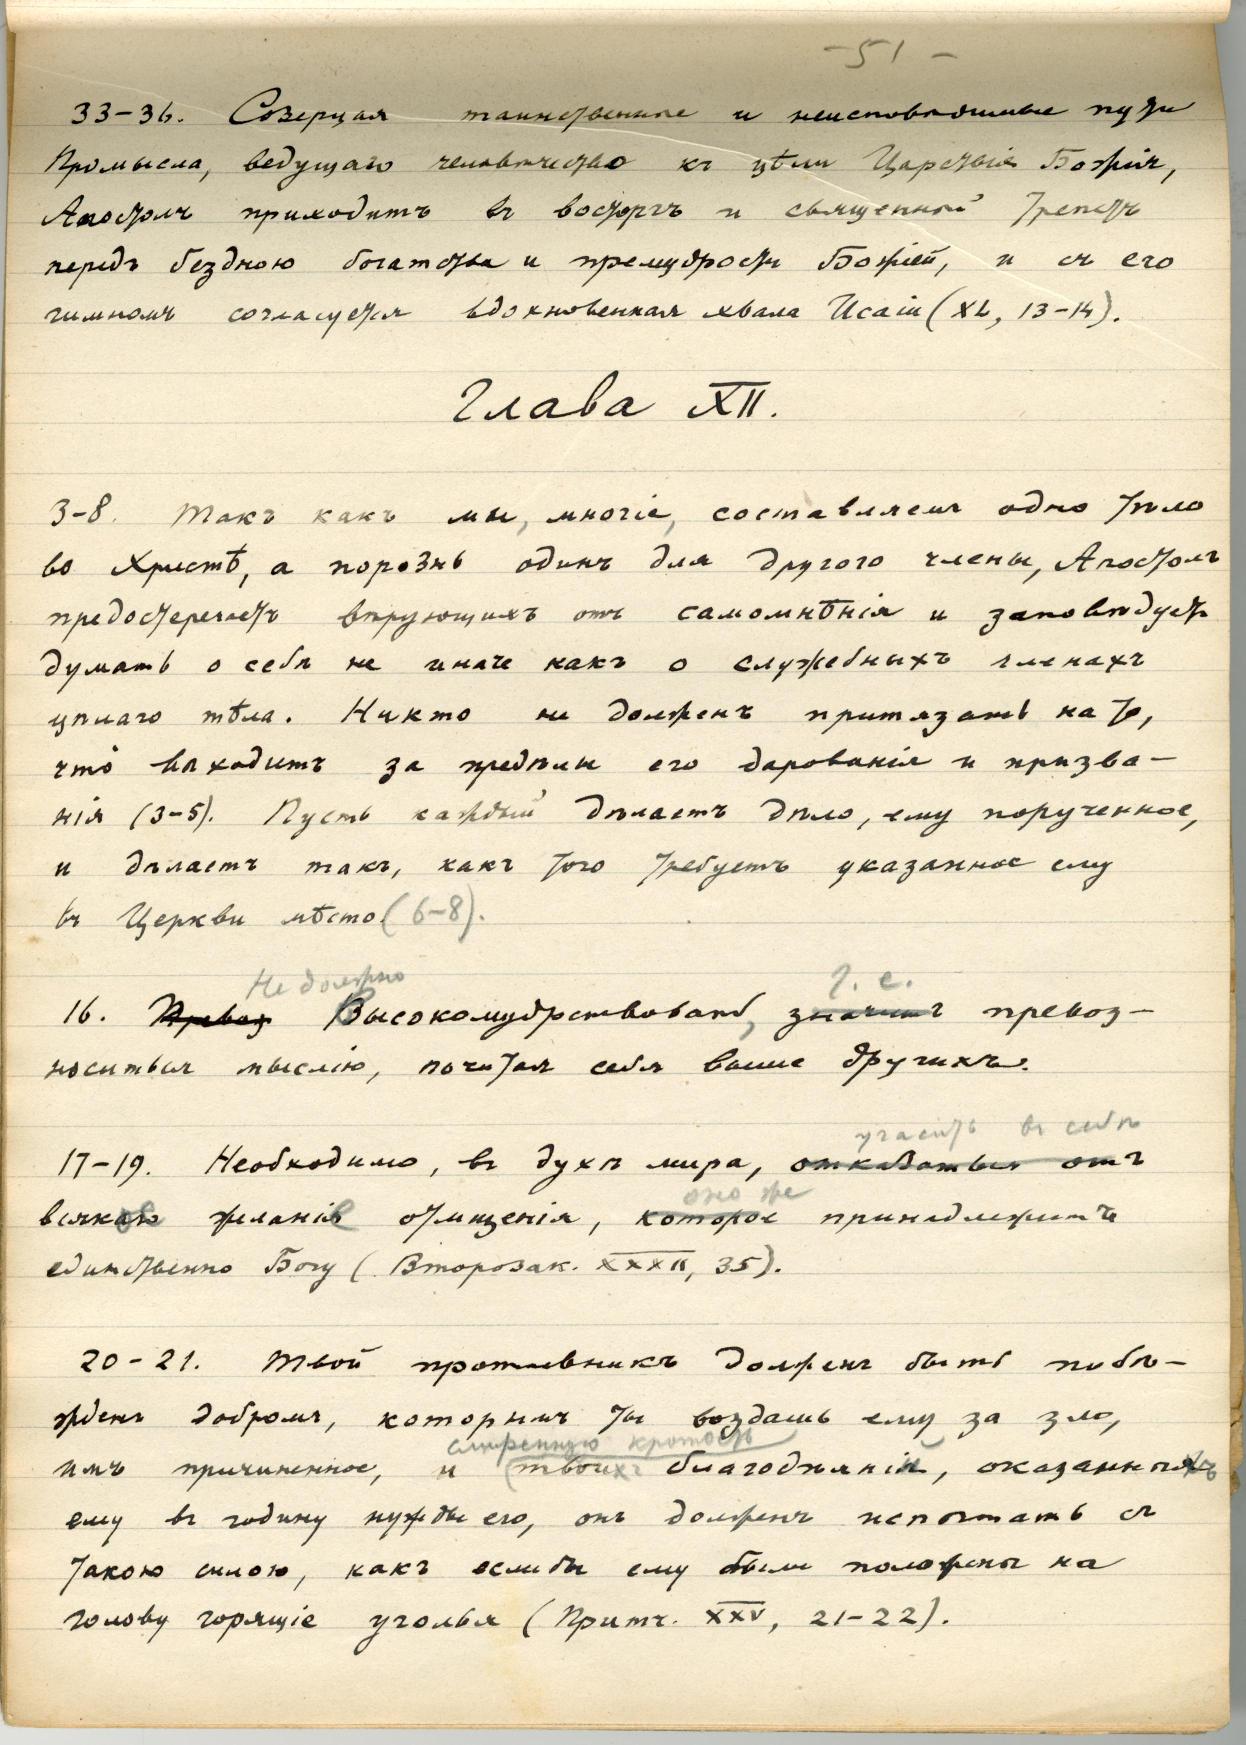 -51-
33-36. Созерцая таинственные и неисповѣдимые пути
Промысла, ведущаго человѣчество къ цѣли Царствія Божія,
Апостолъ приходитъ въ восторгъ и священный трепетъ
передъ бездною богатства и премудрости Божіей, и съ его
гимномъ согласуется вдохновенная хвала Исаіи (XL, 13-14).
Глава XII.
3-8. Такъ какъ мы, многіе, составляемъ одно тѣло
во Христѣ, а порознь одинъ для другого члены, Апостолъ
предостерегаетъ вѣрующихъ отъ самомнѣнія и заповѣдуетъ
думать о себѣ не иначе какъ о служебныхъ членахъ
цѣлаго тѣла. Никто не долженъ притязать на то,
что выходитъ за предѣлы его дарованія и призва-
нія (3-5). Пусть каждый дѣлаетъ дѣло, ему порученное,
и дѣлаетъ такъ, какъ того требуетъ указанное ему
въ Церкви мѣсто (6-8).
Не должно т. е.
16. Превоз Высокомудрствовать, значитъ превоз-
носиться мыслію, почитая себя выше другихъ.
угасить въ себѣ
17-19. Необходимо, въ духѣ мира, отказаться отъ
оно же
всякое желаніе отмщенія, которое принадлежитъ
единственно Богу (Второзак. XXXII, 35).
20-21. Твой противникъ долженъ быть побѣ-
жденъ добромъ, которымъ ты воздашь ему за зло,
смиренную кротость
имъ причиненное, и твоихъ благодѣяній, оказанныхъ
ему въ годину нужды его, онъ долженъ испытать съ
такою силою, какъ еслибы ему были положены на
голову горящіе уголья (Притч. XXV, 21-22).